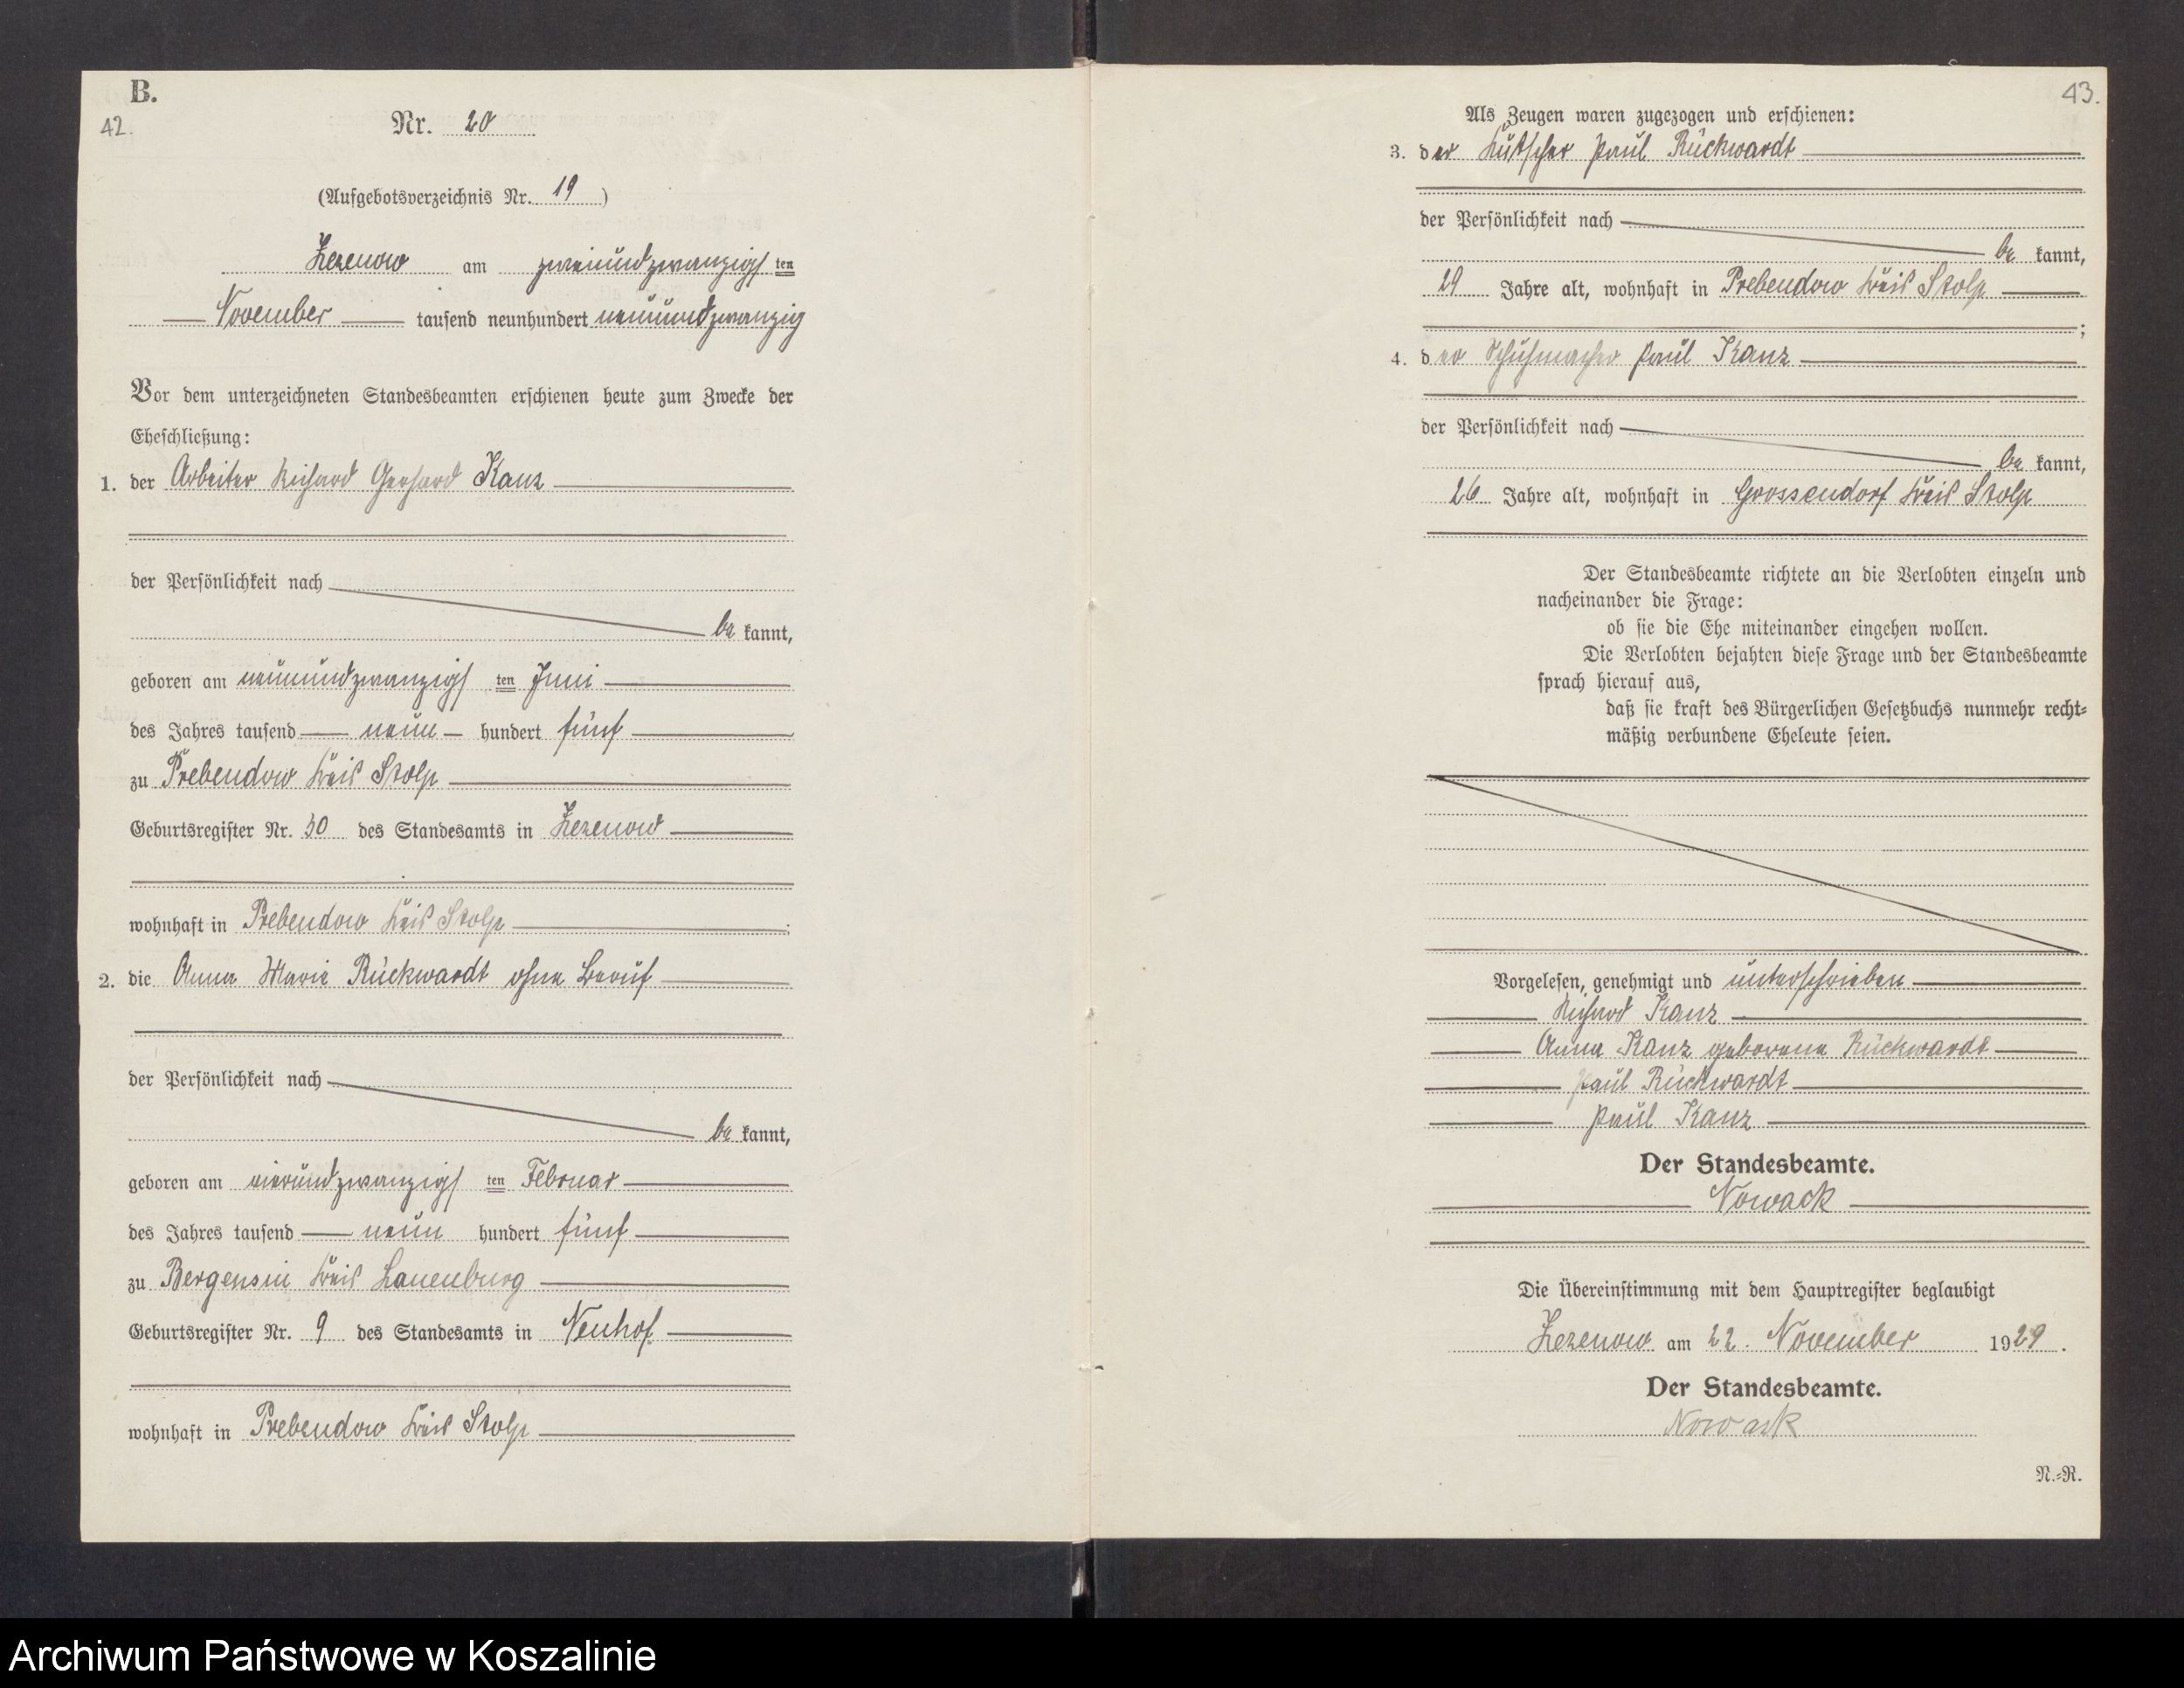 B.
42.
Nr. 20
(Aufgebotsverzeichnis Nr. 19)
Zezenow am zweiundzwanzigsten
November tausend neunhundert neunundzwanzig
Vor dem unterzeichneten Standesbeamten erschienen heute zum Zwecke der
Eheschließung:
1. der Arbeiter Richard Gerhard Kanz
der Persönlichkeit nach
bekannt,
geboren am neunundzwanzigsten Juni
des Jahres tausend neunhundert fünf
zu Prebendow Kreis Stolp
Geburtsregister Nr. 30 des Standesamts in Zezenow
wohnhaft in Prebendow Kreis Stolp;
2. die Anna Marie Rückwardt ohne Beruf
der Persönlichkeit nach
bekannt,
geboren am vierundzwanzigsten Februar
des Jahres tausend neun hundert fünf
zu Bergensin Kreis Lauenburg
Geburtsregister Nr. 9 des Standesamts in Neuhof
wohnhaft in Prebendow Kreis Stolp
43.
Als Zeugen waren zugezogen und erschienen:
3. der Kutscher Paul Rückwardt
der Persönlichkeit nach
bekannt,
29 Jahre alt, wohnhaft in Prebendow Kreis Stolp
;
4. der Schuhmacher Paul Kanz
der Persönlichkeit nach
bekannt,
26 Jahre alt, wohnhaft in Grossendorf Kreis Stolp
Der Standesbeamte richtete an die Verlobten einzeln und
nacheinander die Frage:
ob sie die Ehe miteinander eingehen wollen.
Die Verlobten bejahten diese Frage und der Standesbeamte
sprach hierauf aus,
daß sie kraft des Bürgerlichen Gesetzbuchs nunmehr recht-
mäßig verbundene Eheleute seien.
Vorgelesen, genehmigt und unterschrieben
Richard Kanz
Anna Kanz geborene Rückwardt
Paul Rückwardt
Paul Kanz
Der Standesbeamte.
Nowack
Die Übereinstimmung mit dem Hauptregister beglaubigt
Zezenow am 22. November 1929.
Der Standesbeamte.
Nowack
N.-R.
Archiwum Państwowe w Koszalinie